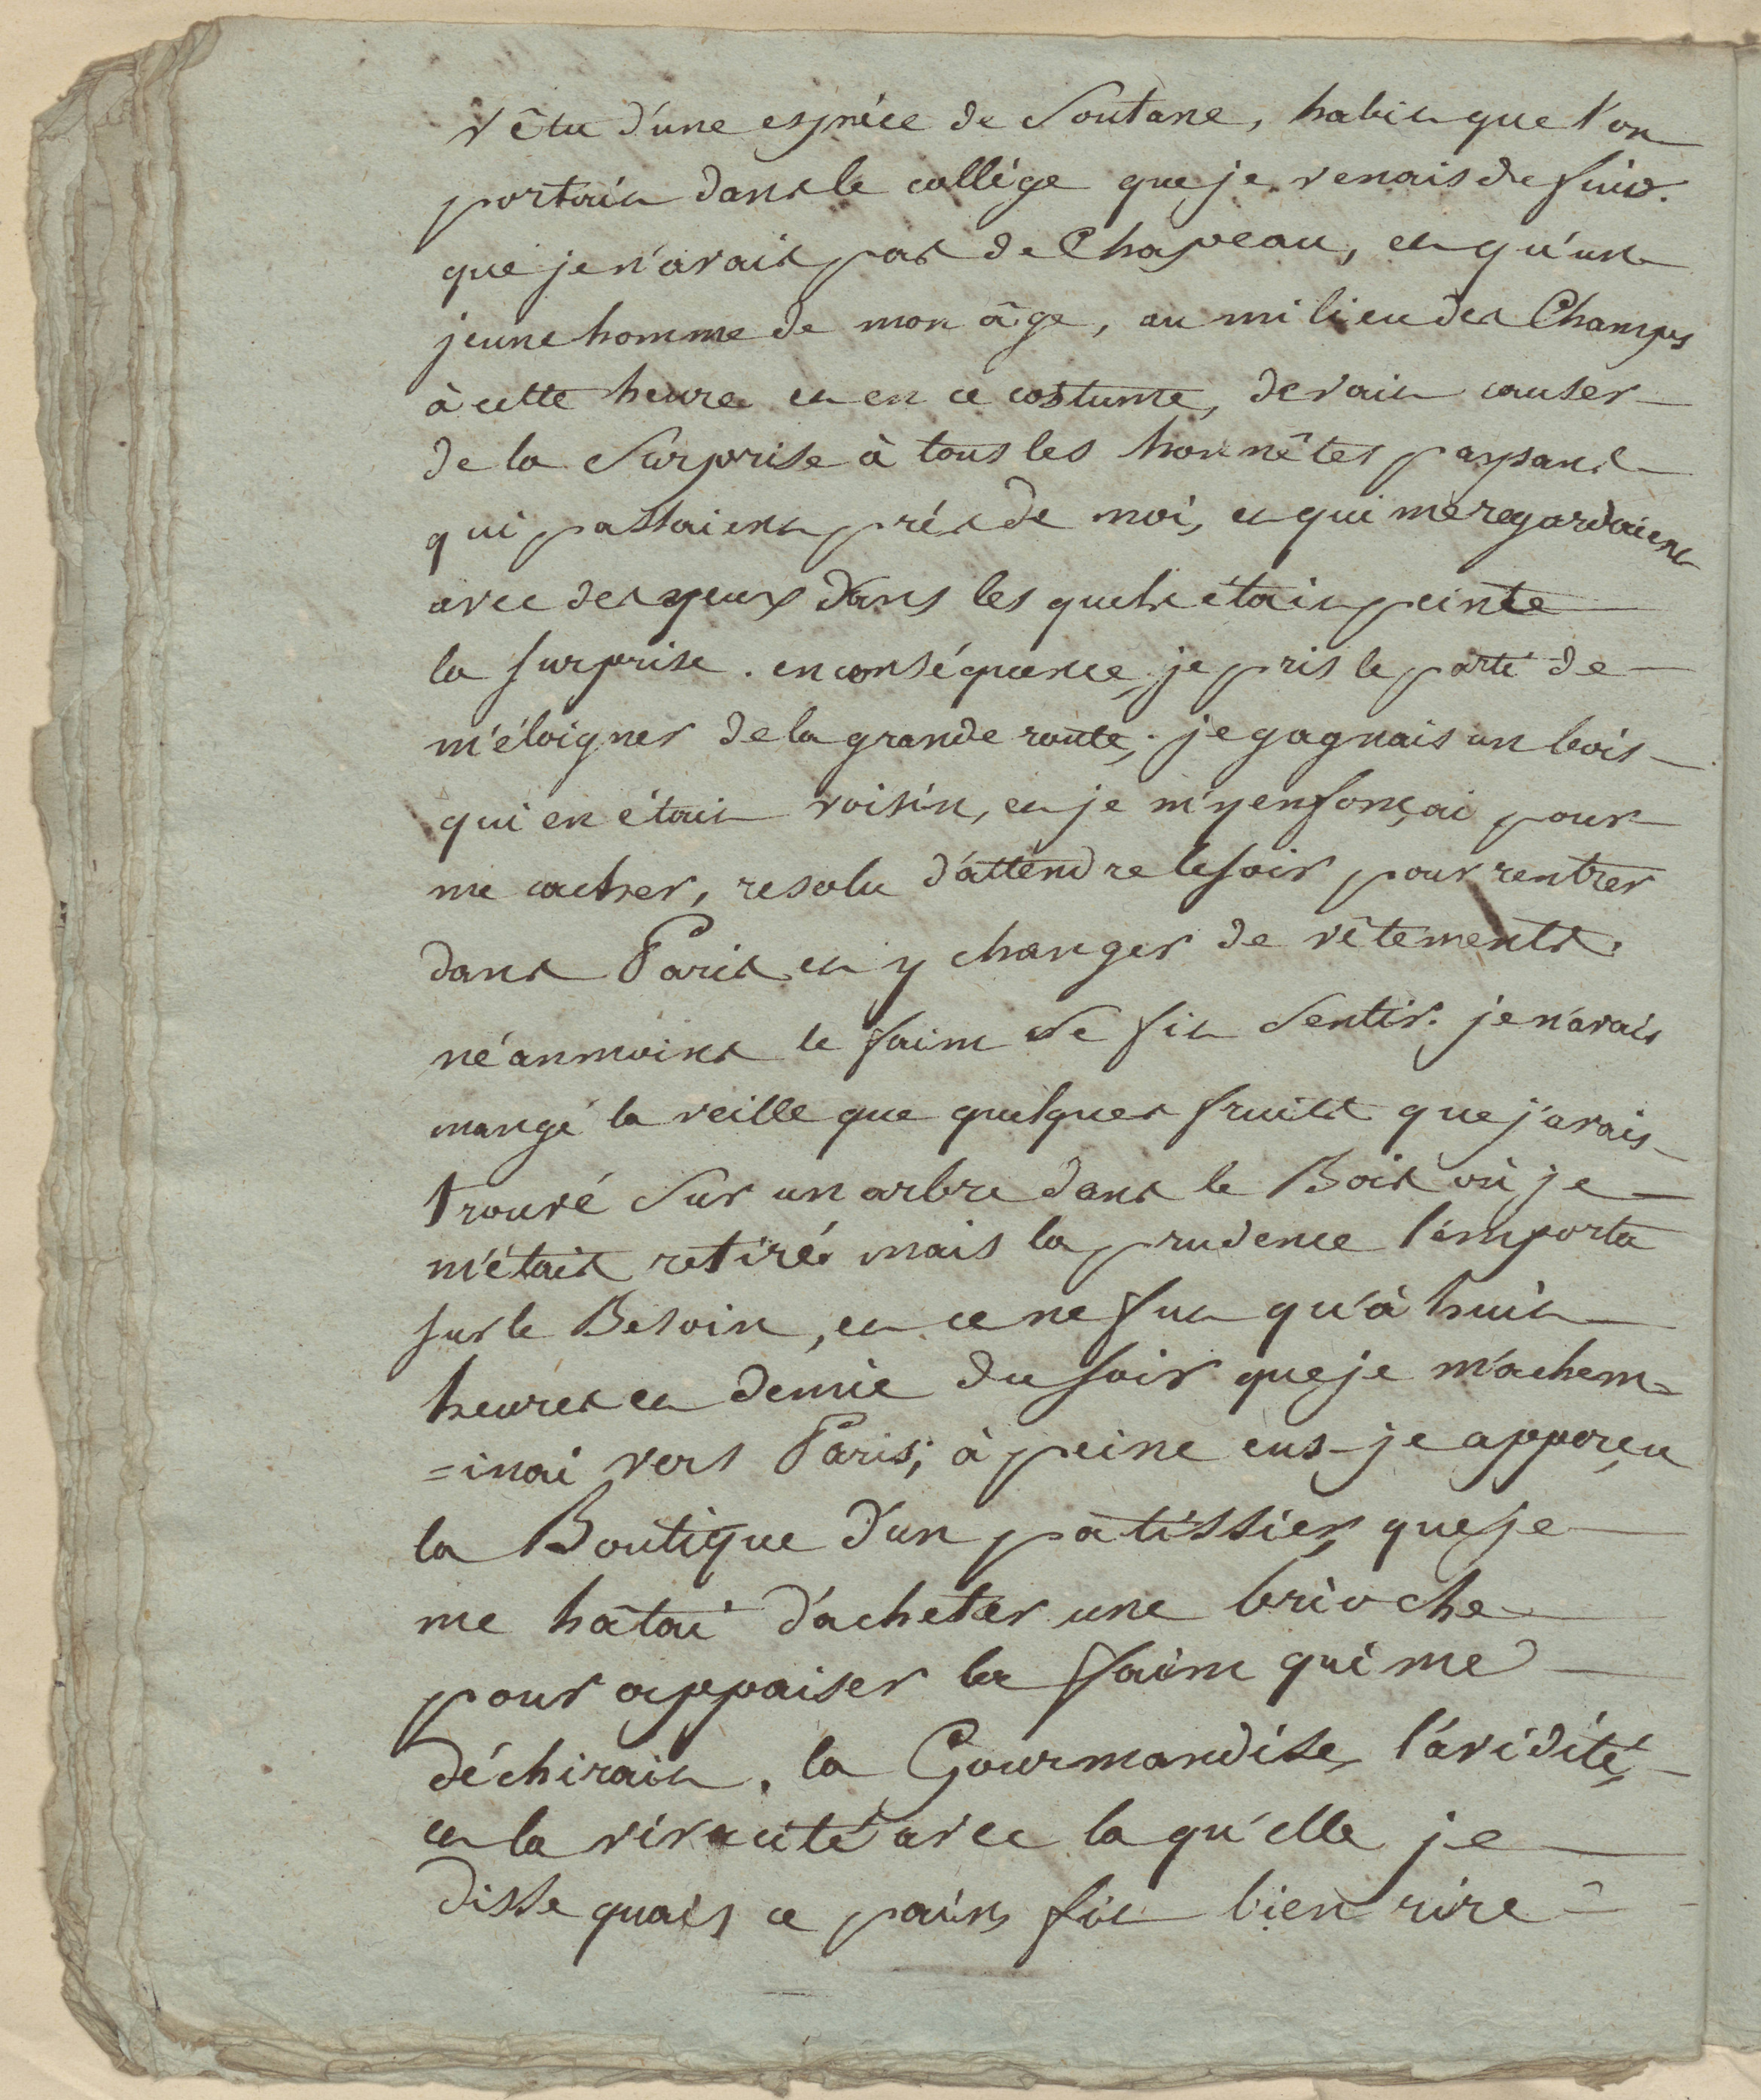 vêtu d'une espèce de Soutane, habit que l'on
portait dans le collège que je venais de fuir.
que je n'avais pas de Chapeau, et qu'un
jeune homme de mon âge, au milieu des Champs
à cette heure et en ce costume, devait causer
de la Surprise à tous les honnêtes paysans
qui passaient près de moi, et qui me regardaient
avec des yeux dans les quels était peinte
la surprise. en conséquence, je pris le parti de
m'éloigner de la grande route; je gagnais un bois
qui en était voisin, et je m'y enfonçai pour
me cacher, resolu d'attendre le soir pour rentrer
dans Paris et y changer de vêtements.
néanmoins la faim se fit Sentir. je n'avais
mangé la veille que quelques fruits que j'avais
trouvé Sur un arbre dans le Bois où je
m'étais retiré. mais la prudence l'emporta
sur le Besoin, et ce ne fut qu'à huit
heures et demie du soir que je m'achem=
=inai vers Paris; à peine eus-je apperçu
la Boutique d'un pâtissier, que je
me hâtai d'acheter une brioche
pour appaiser la faim qui me
déchirait. la Gourmandise, l'avidité,
et la vivacité avec la qu'elle je
disse quais ce pain, fit bien rire